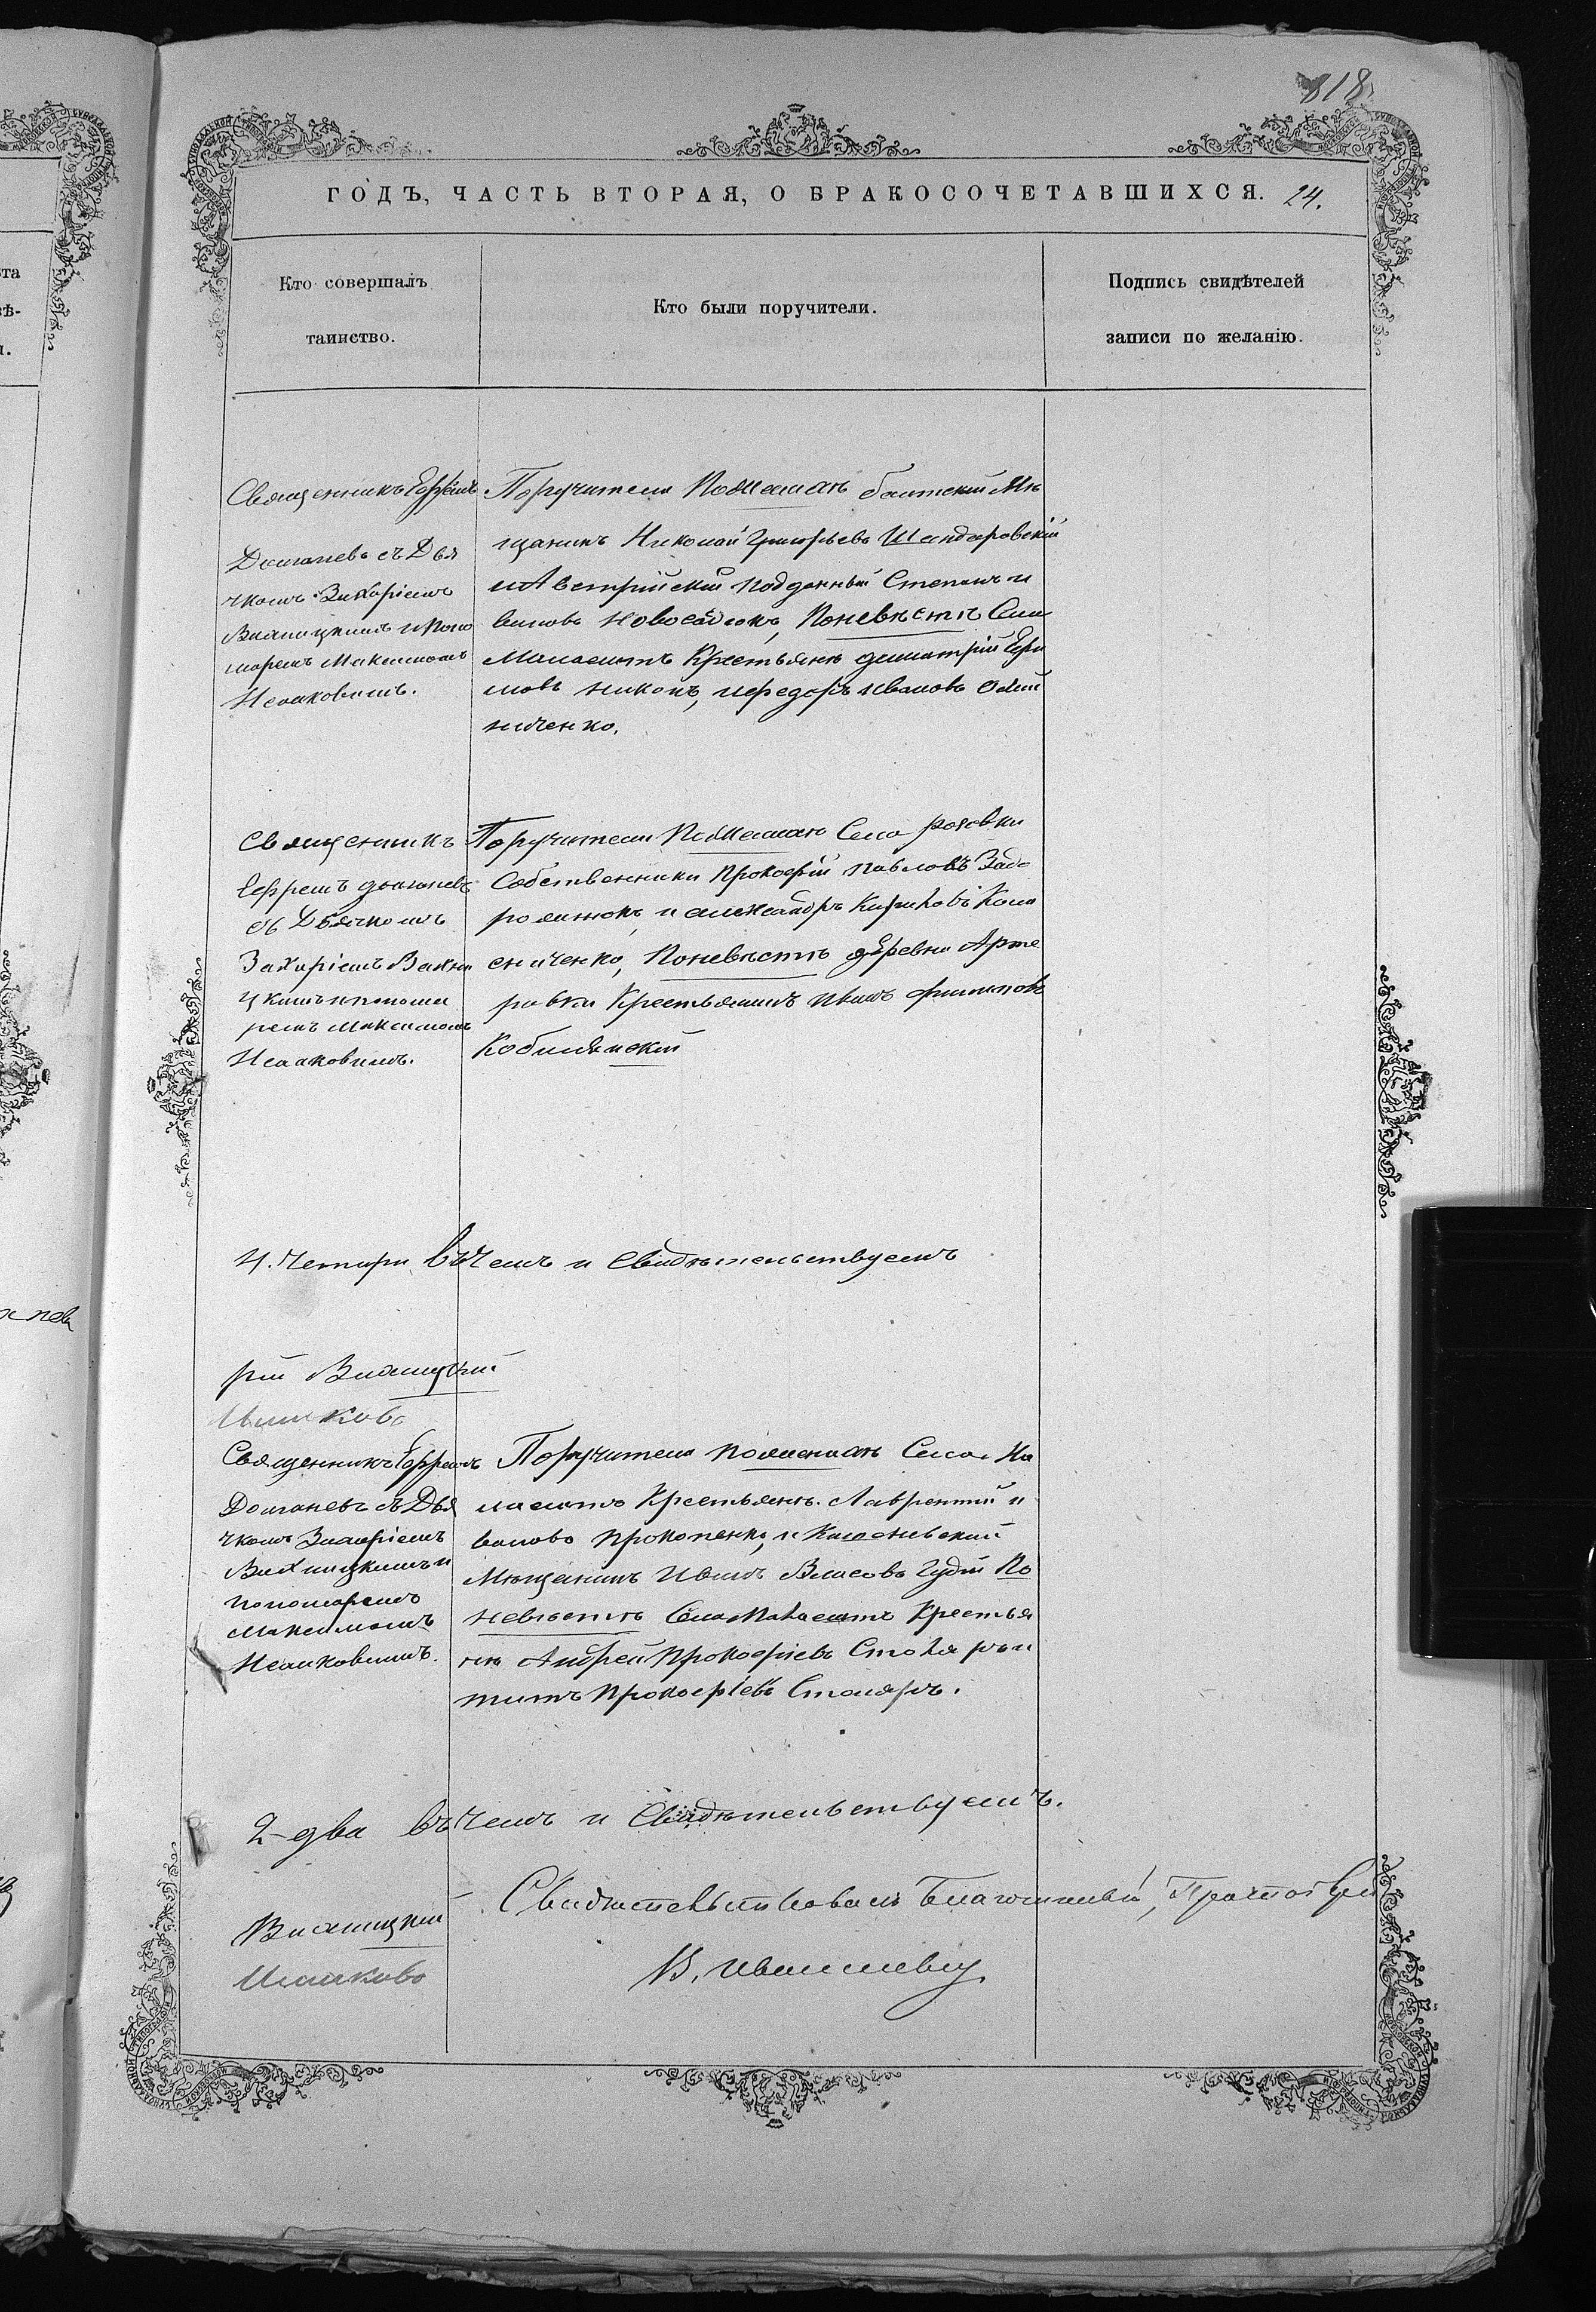 818
ГОДЪ, ЧАСТЬ ВТОРАЯ, О БРАКОСОЧЕТАВШИХСЯ. 24.
Кто совершалъ
таинство.
Кто были поручители.
Подпись свидѣтелей
записи по желанію.
Священникъ Ефремъ
Долганевъ съ Дья
чкомъ Захаріемъ
и Поно
маремъ Максимомъ
Исаковимъ.
Поручители Пожениха балтский Мѣ
щанинъ Николай Григорьевъ Шандаровскій
и Австрійскій подданный Степанъ и
вановъ Новосадюкъ, Поневѣстѣ Села
Маласшт Крестьяне димитрій Ефи
мовъ никонъ, и федоръ ивановъ Олей
ниченко.
Священникъ
Ефремъ долганевъ
съ Дьячкомъ
Захаріемъ Вахни
цкимъ и понома
ремъ Максимомъ
Исааковимъ.
Поручители Пожениха Села
Собственники Прокофій павловъ Заво
ролнюкъ, и александръ Кириловъ Коло
сниченко, Поневѣстѣ деревни Арте
ровки Крестьянинъ иванъ филиповъ
Кобилянскій
4. Четыри въ чемъ и Свидѣтельствуемъ
рій Вихницкій
Исаковъ
Священникъ Ефремъ
Долганевъ съ Дья
чкомъ Захаріемъ
Вихницкимъ и
пономаремъ
Максимомъ
Исааковимъ.
Поручители пожениха Села Ма
Крестьяне Лаврентій и
вановъ прокопенко, и Кишеневский
Мѣщанинъ Иванъ Власовъ Гудій По
невѣстѣ Села Крестья
не Андрей Прокофіевъ Столяръ и
титъ прокофіевъ Столяръ.
2-два въ чемъ и Свидѣтельствуемъ.
Вихницкій
Исааковъ
Свидѣтельствовалъ Благочинный, Протоіерей
В.